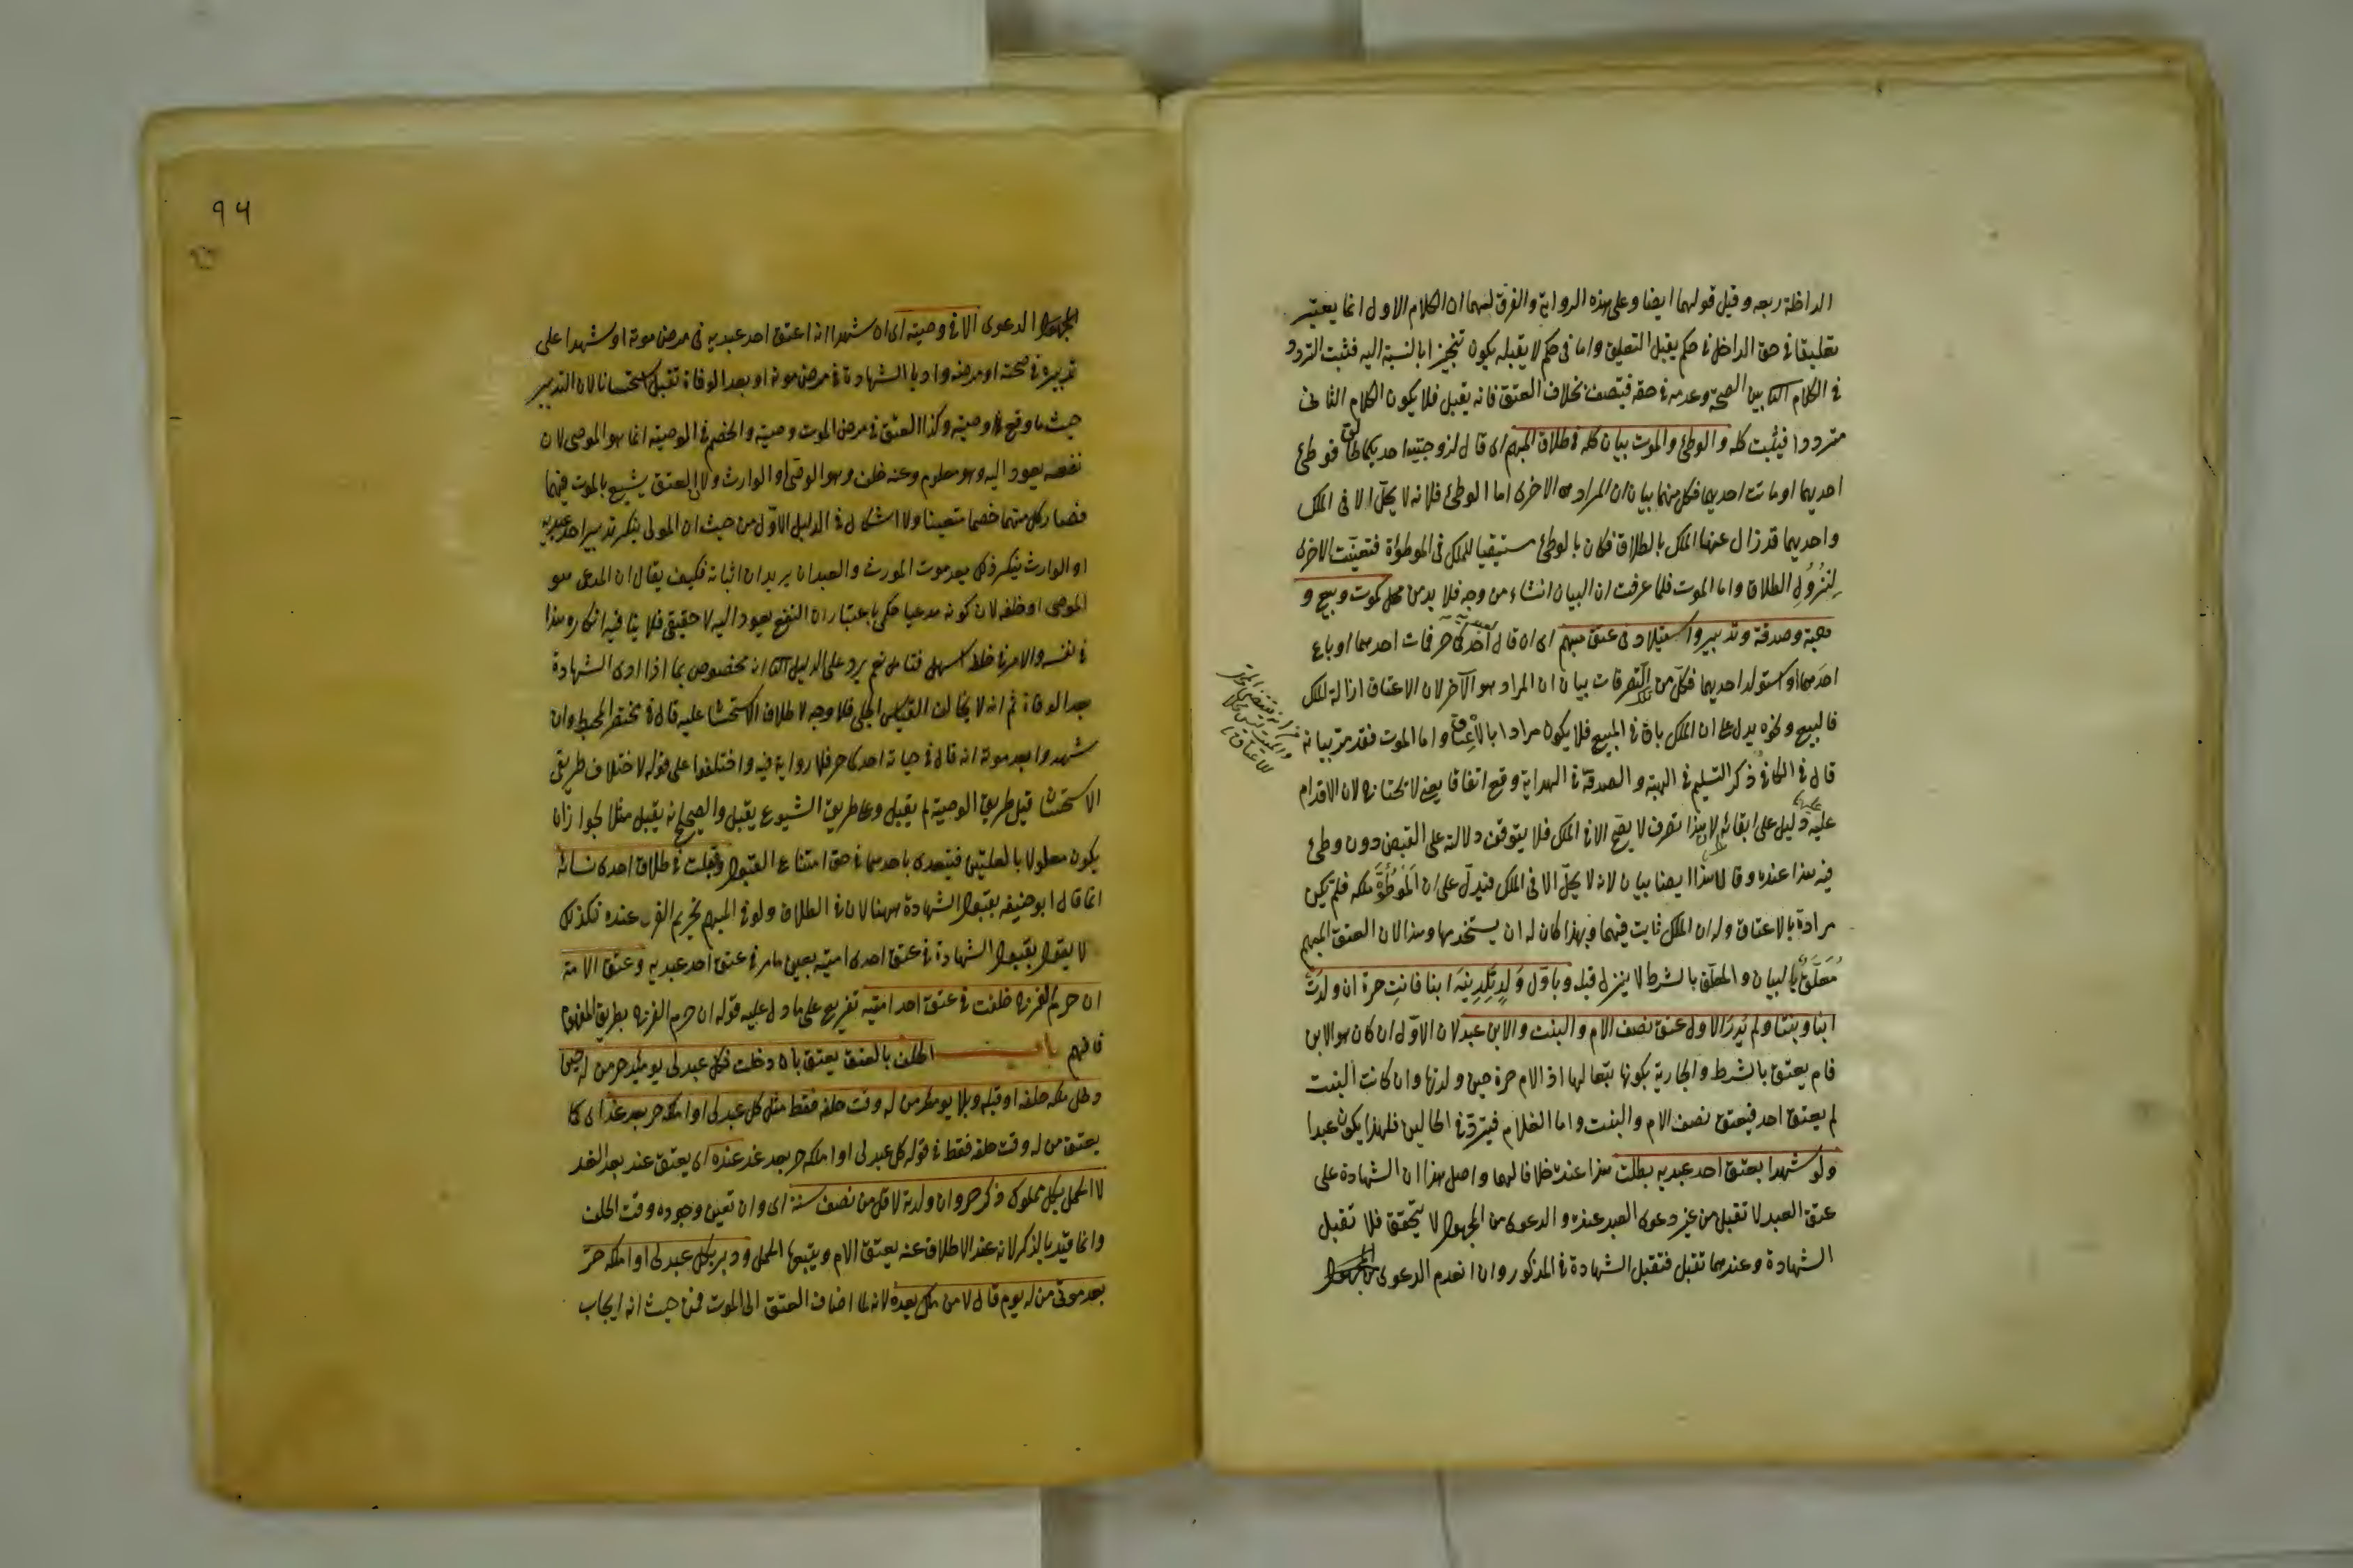 الداخلة ربعه وقيل قولهما ايضا وعلى هذه الرواية والفرق لهما ان الكلام الاول انما يعتبر
تعليقا في حق الداخل في حكم يقبل التعليق واما في حكم لا يقبله يكون تنجيزا بالنسبة اليه فثبت التردد
في الكلام الثا بين الصحة وعدمه في حقه فيتصف بخلاف العتق فانه يقبل فلا يكون الكلام الثانى
مترددا فيثبت كله والوطئ والموت بيان كله في طلاق المبهم اى قال لزوجتيه احديكما طالق فوطئ
احديهما او ماتت احديهما فكل منهما بيان ان المراد هو الاخرى اما الوطئ فلانه لا يحل الا فى الملك
واحديهما قد زال عنها الملك بالطلاق فكان بالوطئ مستبقيا للملك فى الموطؤة فتعينت الاخرى
لنزول الطلاق واما الموت فلما عرفت ان البيان انشاء من وجه فلا بد من محل كموت وبيع و
هبة وصدقة وتدبير واستيلاد فى عتق مبهم اى ان قال احدكما حر فمات احدهما او باع
احدهما او استولد احديهما فكل من التصرفات بيان ان المراد هو الآخر لان الاعتاق ازالة للملك
فالبيع ونحوه يدل على ان الملك باق في المبيع فلا يكون مرادا بالاعتاق واما الموت فقد مر بيانه
قال في الكافي ذكر التسليم في الهبة والصدقة في الهداية وقع اتفاقا يعنى لا يحتا لان الاقدام
عليه دليل على ابقائه لان هذا تصرف لا يصح الا في الملك فلا يتوقف دلالته على القبض دون وطئ
فيه هذا عنده وقالا هذا ايضا بيان لانه لا يحل الا فى الملك فيدل على ان الموطؤة ملكه فلم تكن
مرادة بالاعتاق وله ان الملك ثابت فيهما وبهذا كان له ان يستخدمها وهذا لان العتق المبهم
معلق بالبيان والمعلق بالشرط لا ينزل قبله وباول ولد تلدينه ابنا فانت حرة ان ولدت
ابنا وبنتا ولم يدر الاول عتق نصف الام والبنت والابن عبد لان الاول ان كان هو الابن
فام يعتق بالشرط والجارية بكونها تبعا لها اذ الام حرة حين ولدتها وان كانت البنت
لم يعتق احد فيعتق نصف الام والبنت واما الغلام فيرق في الحالين فلهذا يكون عبدا
ولو شهدا بعتق احد عبديه بطلت هذا عنده خلافا لهما واصل هذا ان الشهادة على
عتق العبد لا تقبل من غير دعوى العبد عنده والدعوى من المجهول لا يتحقق فلا تقبل
الشهادة وعندهما تقبل فتقبل الشهادة في المذكور وان انعدم الدعوى
٩٤
المجهول الدعوى الا في وصية اى ان شهدا انه اعتق احد عبديه فى مرض موته او شهدا على
تدبيره في صحته او مرضه واديا الشهادة في مرض موته او بعد الوفاة تقبل استحسانا لان التدبير
حيث ما وقع وقع وصية وكذا العتق في مرض الموت وصية والخصم في الوصية انما هو الموصى لان
نفعه يعود اليه وهو معلوم وعنه خلف وهو الوصى او الوارث ولان العتق يشيع بالموت فيهما
فصار كل منهما خصما متعينا ولا اشكال في الدليل الاول من حيث ان المولى ينكر تدبير احد عبديه
او الوارث ينكر ذلك بعد موت المورث والعبدان يريدان اثباته فكيف يقال ان المدعى هو
الموصى او خلفه لان كونه مدعيا حكمى باعتبار ان النفع يعود اليه لا حقيقى فلا ينافيه انكاره وهذا
في نفس والامر في خلط سهل فتامل نعم يرد على الدليل الثا انه مخصوص بما اذا ادى الشهادة
بعد الوفاة ثم انه لا يخالف القياس الجلى فلا وجه لاطلاق الاستحسا عليه قال في مختصر المحيط وان
شهدوا بعد موته انه قال في حياته احدكما حر فلا رواية فيه واختلفوا على قوله لاختلاف طريقى
الاستحسا قيل طريق الوصية لم يقبل وعلى طريق الشيوع يقبل والصحيح انه يقبل مثلا لجواز ان
يكون معلولا بالعلتين فيتعدى باحدهما في حق امتناع القبول وقبلت في طلاق احدى نسائه
انما قال ابو حنيفه بقبول الشهادة ههنا لان في الطلاق ولو في المبهم تحريم الفرج عنده فكذلك
لا يقول بقبول الشهادة في عتق احدى امتيه بعين ما مر في عتق احد عبديه وعتق الامة
ان حرم الفرج خلفت في عتق احد امتيه تفريع على ما دل عليه قوله ان حرم الفرج بطريق المفهوم
فافهم باب الحلف بالعتق يعتق بان دخلت فكل عبد لى يومئذ حر من له حين
دخل ملكه حلفه او قبله وبلا يومئذ من له وقت حلفه فقط مثل كل عبد لى او املكه حر بعد غد اى كما
يعتق من له وقت حلفه فقط في قوله كل عبد لى او املكه حر بعد غد عنده اى يعتق عند بعد الغد
لا الحمل بكل مملوك ذكر حر وان ولدته لاقل من نصف سنة اى وان تعين وجوده وقت الحلف
وانما قيد بالذكر لانه عند الاطلاق عنه يعتق الام ويتبعها الحمل ودبر بكل عبد لى او املكه حر
بعد موتى من له يوم قال لا من ملك بعده لانه لما اضاف العتق الى الموت فمن حيث انه ايجاب